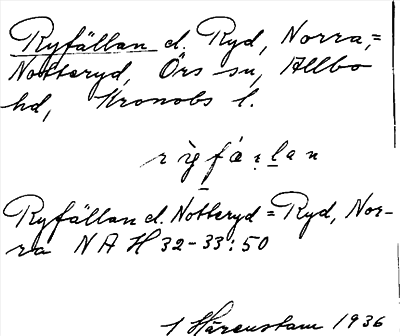 Ryfällan d. Ryd, Norra,=
Notteryd, Örs sn, Allbo
hd, Kronobs l.
Ryfällan d. Notteryd = Ryd, Nor-
ra N A H 32-33:50
I Härenstam 1936